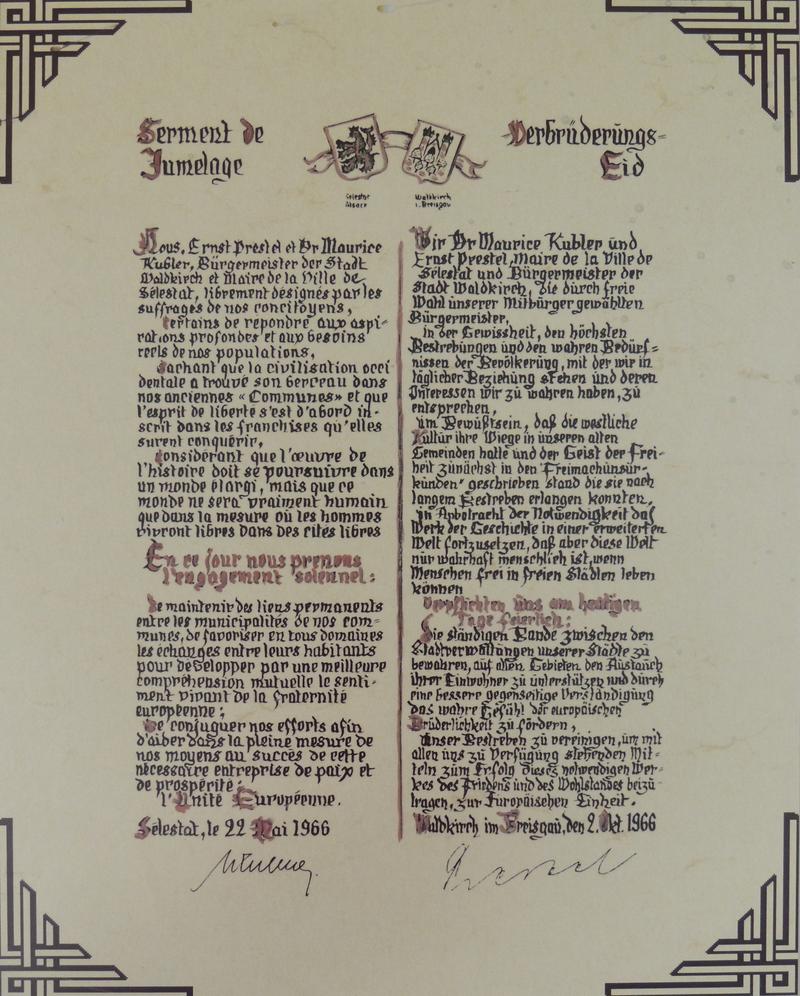 Serment de
Jumelage
Sélestat
Alsace
Waldkirch
i. Breisgau
Verbrüderungs=
Eid
Nous, Ernst Prestel et Dr Maurice
Kubler, Bürgermeister der Stadt
Waldkirch et Maire de la Ville de
Sélestat, librement désignés par les
suffrages de nos concitoyens,
Certains de repondre aux aspi-
rations profondes et aux besoins
reels de nos populations,
Sachant que la civilisation occi
dentale a trouvé son berceau dans
nos anciennes « Communes» et que
l'esprit de liberte s'est d'abord in-
scrit dans les franchises qu'elles
surent conquérir,
Considérant que l'œuvre de
l'histoire doit se poursuivre dans
un monde élargi, mais que ce
monde ne sera vraiment humain
que dans la mesure où les hommes
vivront libres dans des cites libres
En ce jour nous prenons
l'engagement solennel:
De maintenir des liens permanents
entre les municipalités de nos com=
munes, de favoriser en tous domaines
les échanges entre leurs habitants
pour développer par une meilleure
compréhension mutuelle le senti-
ment vivant de la fraternité
européenne;
De conjuguer nos efforts afin
d'aider dans la pleine mesure de
nos moyens au succès de cette
nécessaire entreprise de paix et
de prospérité:
l'Unité Européenne.
Sélestat, le 22 Mai 1966
Wir Dr Maurice Kubler und
Ernst Prestel, Maire de la Ville de
Sélestat und Bürgermeister der
Stadt Waldkirch, die durch freie
Wahl unserer Mitbürger gewählten
Bürgermeister,
in der Gewissheit, den höchsten
Bestrebungen und den wahren Bedürf=
nissen der Bevölkerung, mit der wir in
täglicher Beziehung stehen und deren
Interessen wir zu wahren haben, zu
entsprechen,
im Bewußtsein, daß die westliche
Kultur ihre Wiege in unseren alten
Gemeinden hatte und der Geist der Frei-
heit zunächst in den "Freimachunsur-
kunden" geschrieben stand die sie nach
langem Bestreben erlangen konnten,
in Anbetracht der Notwendigkeit das
Werk der Geschichte in einer erweiterten
Welt fortzusetzen, daß aber diese Welt
nur wahrhaft menschlich ist, wenn
Menschen frei in freien Städten leben
können
Verpflichten uns am heutigen
Tage feierlich:
Die ständigen Bande zwischen den
Stadtverwaltungen unserer Städte zu
bewahren, auf allen Gebieten den Austauch
ihrer Einwohner zu unterstützen und durch
eine bessere gegenseitige Verständigung
das wahre Gefühl der europäischen
Brüderlichkeit zu fördern,
Unser Bestreben zu vereinigen, um mit
allen uns zu Verfügung stehenden Mit-
teln zum Erfolg dieses notwendigen Wer-
kes des Friedens und des Wohlstandes beizu-
tragen, zur Europäischen Einheit.
Waldkirch im Breisgau, den 2. Okt. 1966
Prestel